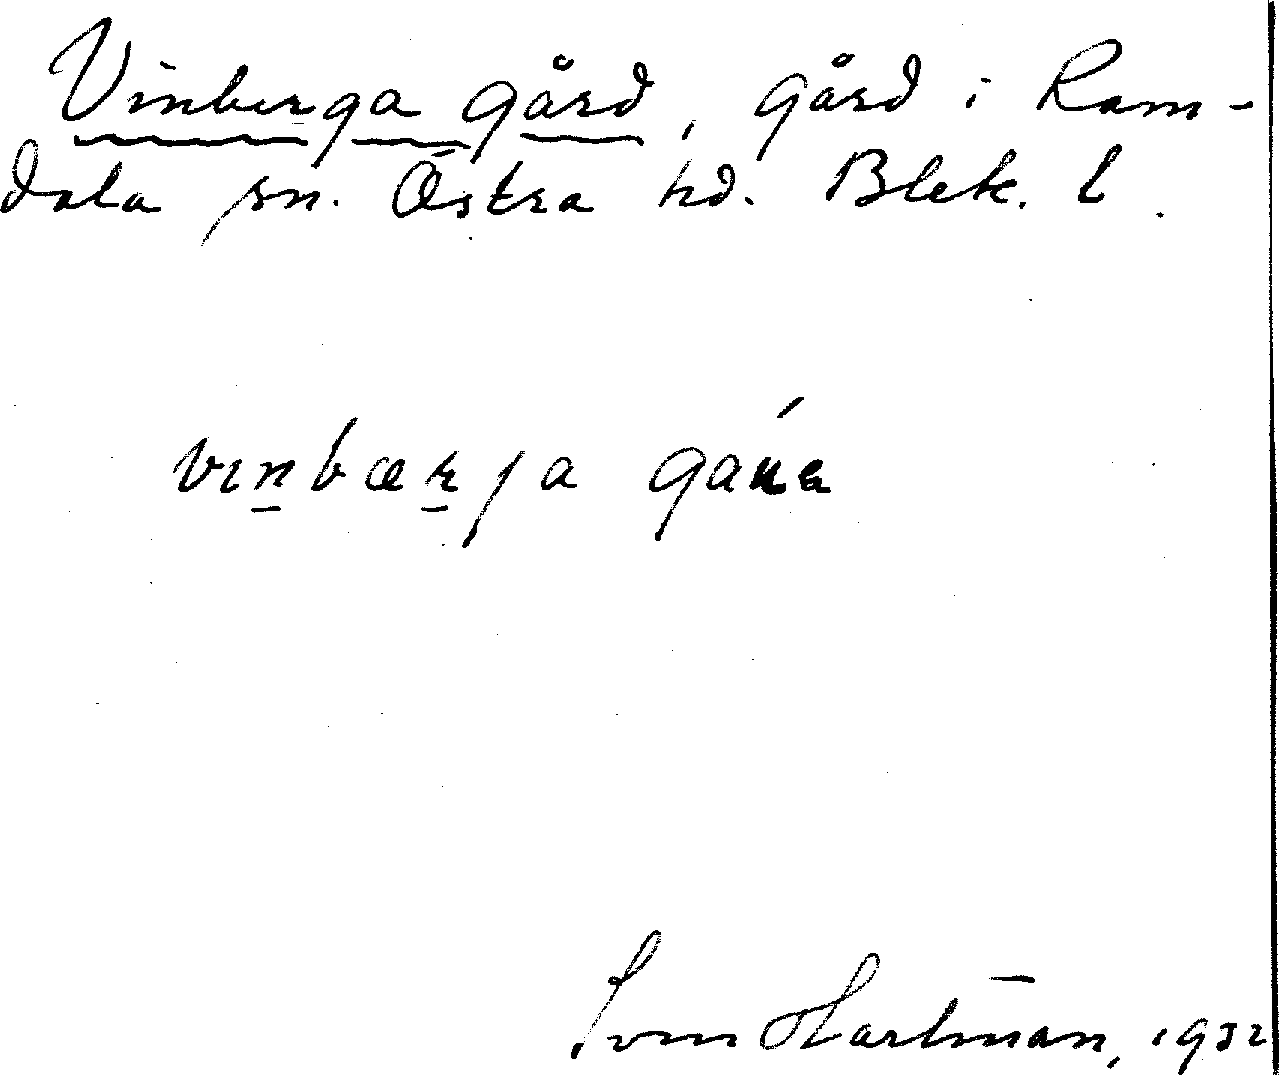 Vinberga gård, gård i Ram-
dala sn. Östra hd. Blek. l.
vinbærja
Sven Hartman, 1932